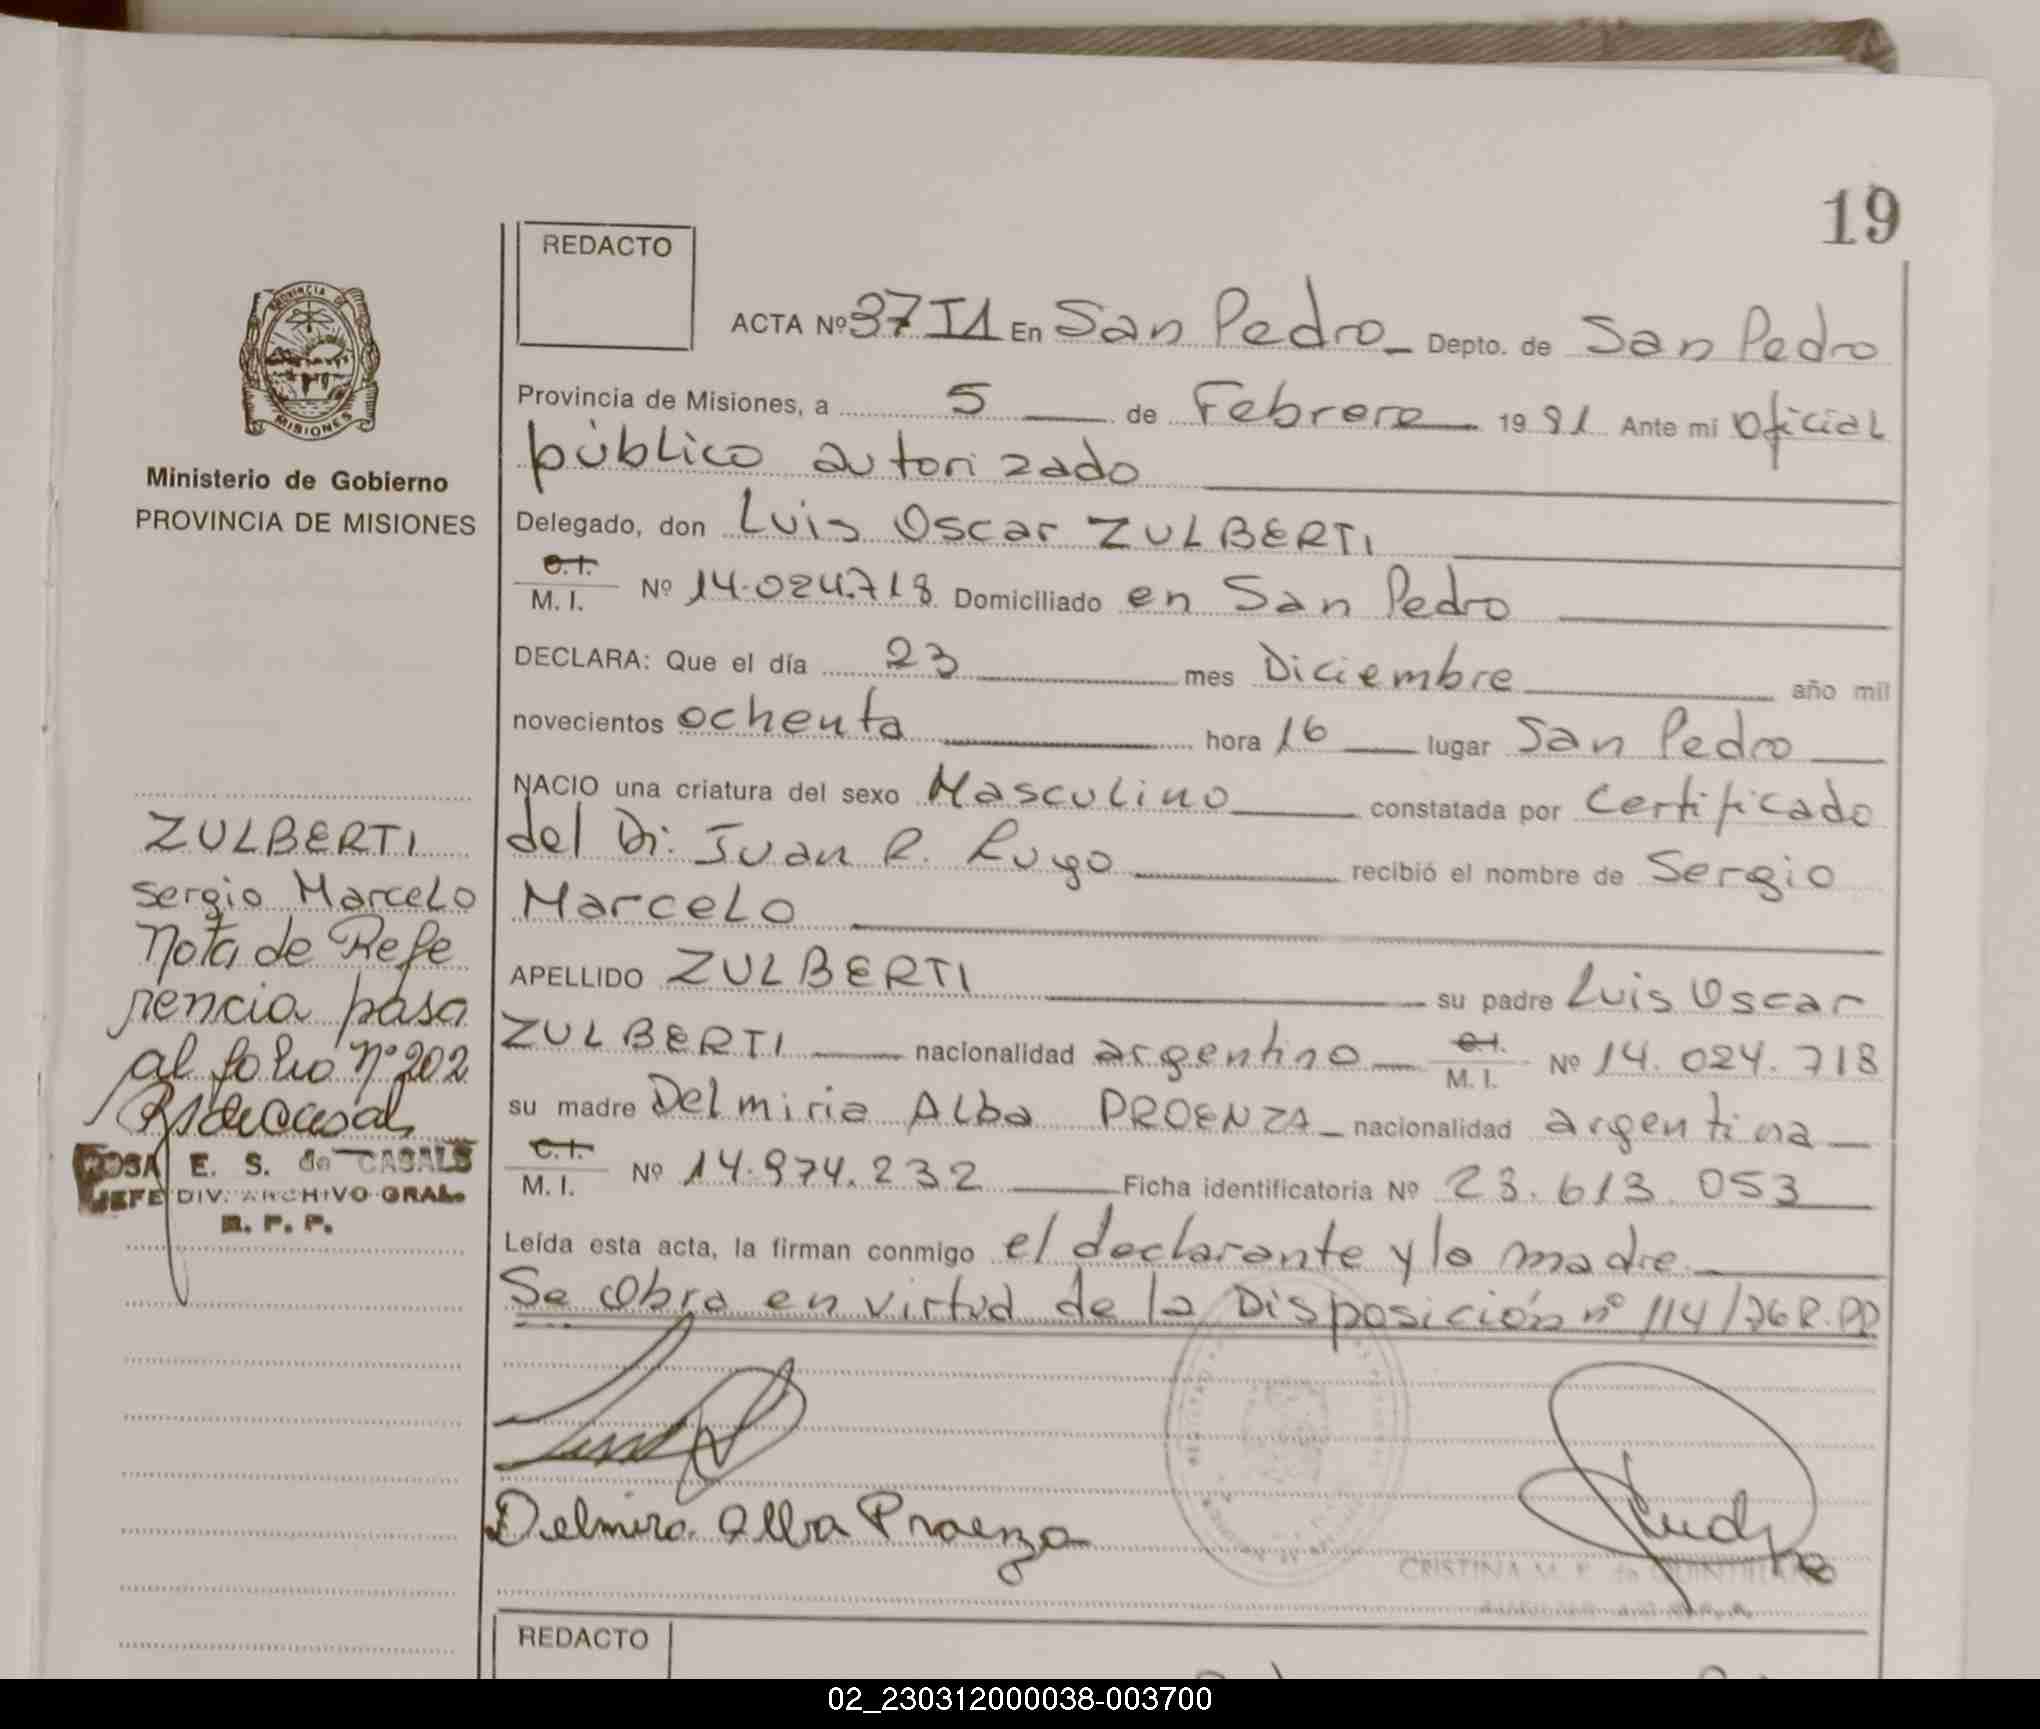 19
REDACTO
ACTA Nº 37 T1 En San Pedro Depto. de San Pedro
Provincia de Misiones, a 5 de Febrero 1981 Ante mi Oficial
público autorizado
Delegado, don Luis Oscar ZULBERTI
C.I.
M. I. Nº 14.024.718 Domiciliado en San Pedro
DECLARA: Que el día 23 mes Diciembre año mil
novecientos ochenta hora 16 lugar San Pedro
NACIO una criatura del sexo Masculino constatada por Certificado
del Dr. Juan R. Lugo recibió el nombre de Sergio
Marcelo
APELLIDO ZULBERTI su padre Luis Oscar
ZULBERTI nacionalidad argentino C.I. M. I. Nº 14.024.718
su madre Delmiria Alba PROENZA nacionalidad argentina
C.I.
M. I. Nº 14.974.232 Ficha identificatoria Nº 23.613.053
Leída esta acta, la firman conmigo el declarante y la madre
Se obra en virtud de la Disposición nº 114/76 R.PP
Delmira Alba Proenza
CRISTINA M.
REDACTO
PROVINCIA DE
MISIONES
Ministerio de Gobierno
PROVINCIA DE MISIONES
ZULBERTI
Sergio Marcelo
Nota de Refe
rencia pasa
al folio Nº 202
ROSA E. S. de CASALS
JEFE DIV. ARCHIVO GRAL.
R. P. P.
02_230312000038-003700